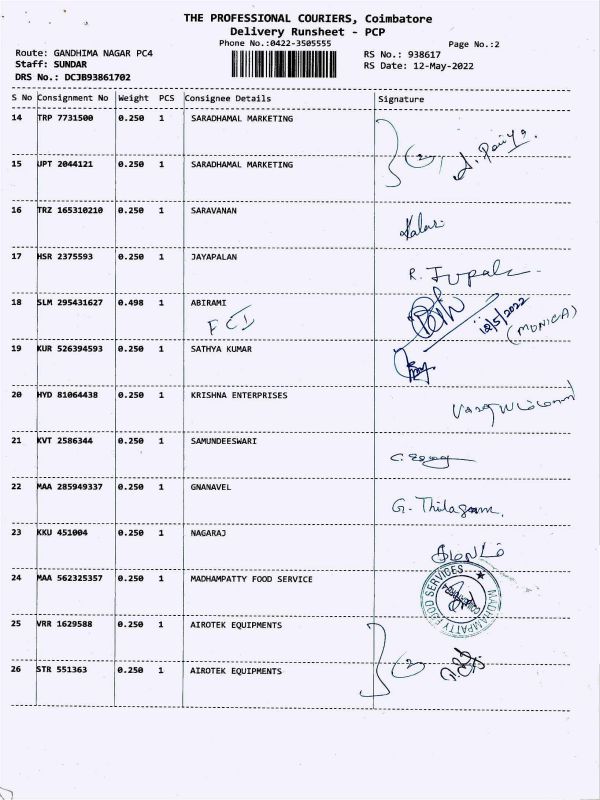 THE PROFESSIONAL COURIERS, Coimbatore
Delivery Runsheet - PCP
Phone No.:0422-3505555
Page No.:2
Route: GANDHIMA NAGAR PC4
RS No.: 938617
Staff: SUNDAR
RS Date: 12-May-2022
DRS No.: DCJB93861702
S No Consignment No Weight PCS Consignee Details Signature
14 TRP 7731500 0.250 1 SARADHAMAL MARKETING
15 UPT 2044121 0.250 1 SARADHAMAL MARKETING
16 TRZ 165310210 0.250 1 SARAVANAN
17 HSR 2375593 0.250 1 JAYAPALAN
18 SLM 295431627 0.498 1 ABIRAMI
FCI
(MONICA)
19 KUR 526394593 0.250 1 SATHYA KUMAR
20 HYD 81064438 0.250 1 KRISHNA ENTERPRISES
21 KVT 2586344 0.250 1 SAMUNDEESWARI
22 MAA 285949337 0.250 1 GNANAVEL
G. Thilagam.
23 KKU 451004 0.250 1 NAGARAJ
24 MAA 562325357 0.250 1 MADHAMPATTY FOOD SERVICE
MADHAMPATTY FOOD SERVICES
25 VRR 1629588 0.250 1 AIROTEK EQUIPMENTS
26 STR 551363 0.250 1 AIROTEK EQUIPMENTS